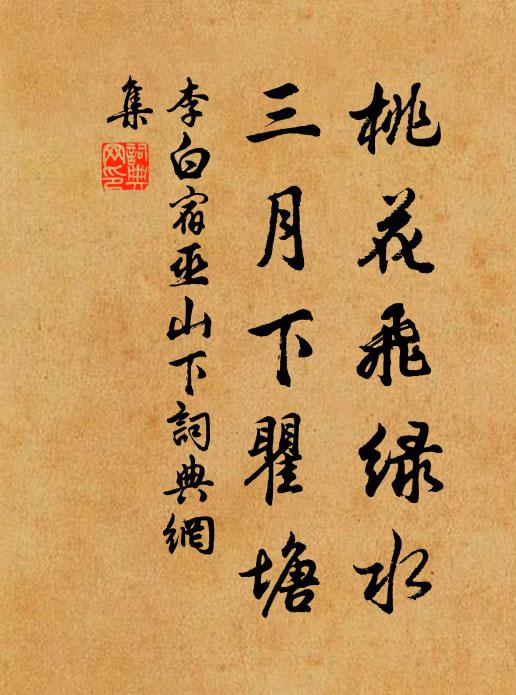 桃花飛綠水
三月下瞿塘
李白宿巫山下詞典網
集
詞典網印